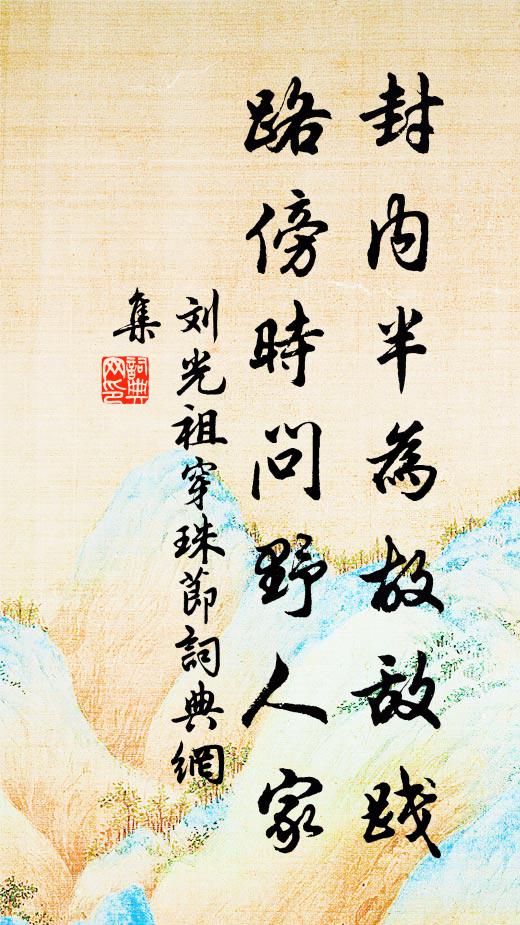 封内半為故敌践
路傍時問野人家
刘光祖穿珠節詞典網
集
詞典
网印